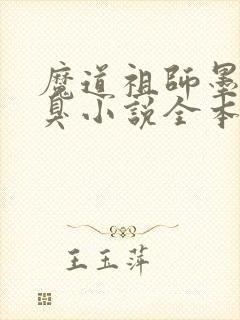 魔道祖師墨
臭小說全本
王玉萍